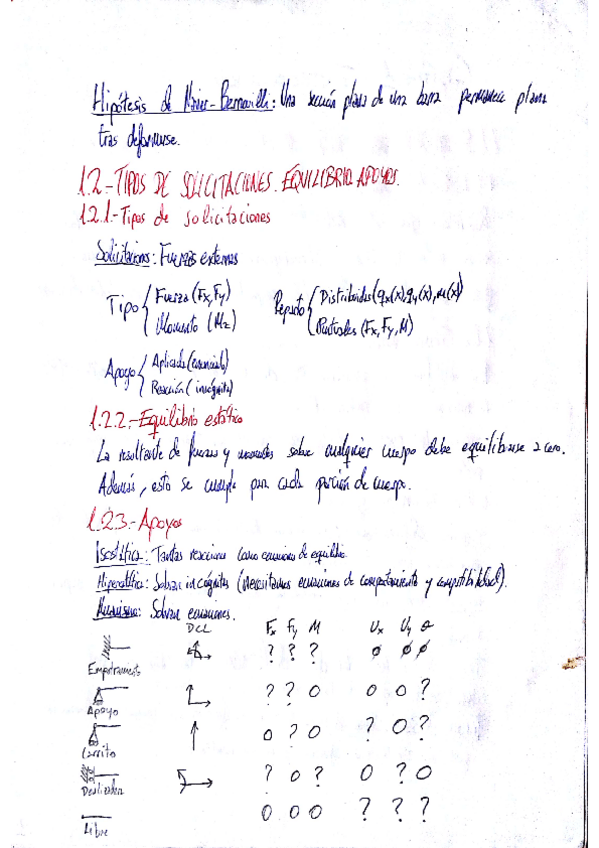 Hipótesis de Navier-Bernoulli: Una sección plana de una barra permanece plana
tras deformarse.
1.2.-TIPOS DE SOLICITACIONES. EQUILIBRIO. APOYOS.
1.2.1.-Tipos de solicitaciones
Solicitaciones: Fuerzas externas
Tipo { Fuerza (Fx, Fy)
Momento (Mz)
Reparto { Distribuidas (qx(x), qy(x), m(x))
Puntuales (Fx, Fy, M)
Apoyo { Aplicada (conocida)
Reacción (incógnita)
1.2.2.-Equilibrio estático
La resultante de fuerzas y momentos sobre cualquier cuerpo debe equilibrarse a cero.
Además, esto se cumple para cada porción de cuerpo.
1.2.3.-Apoyos
Isostática: Tantas reacciones como ecuaciones de equilibrio.
Hiperestática: Sobran incógnitas (necesitamos ecuaciones de comportamiento y compatibilidad).
Mecanismo: Sobran ecuaciones.
DCL Fx Fy M Ux Uy θ
Empotramiento ? ? ? ø ø ø
Apoyo ? ? 0 0 0 ?
Carrito 0 ? 0 ? 0 ?
Deslizadera ? 0 ? 0 ? 0
Libre 0 0 0 ? ? ?